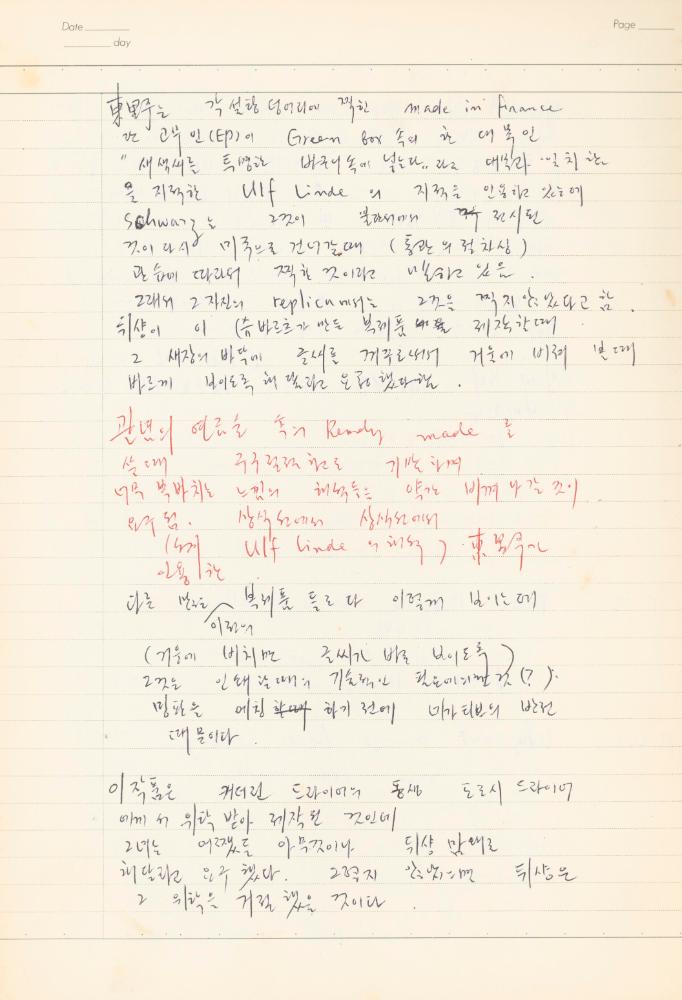 Date
day
Page
東野는 각설탕 덩어리에 찍힌 made in france
란 고무인(EP)이 Green Box 속의 한 대목인
" 새색씨를 투명한 바구니 속에 넣는다" 라고 대목과 일치한
을 지적한 Ulf Linde 의 지적을 인용하고 있는데
Schwarz는 그것이 전시된
것이 다시 미국으로 건너갈때 (통관의 절차상)
관습에 따라서 찍힌 것이라고 말하고 있음.
그래서 그 자신의 replica에서는 그것을 찍지 않았다고 함.
뒤샹이 이 (슈바르츠가 만든 복제품을 제작할때
그 새장의 바닥에 글씨를 꺼꾸로써서 거울에 비춰 볼때
바르게 보이도록 해달라고 요구했다함.
관념의 연금술 속의 Ready made 를
쓸때 구구절절함으로 기발하며
너무 북바치는 느낌의 해석들은 약간 비껴 나갈 것이
요구됨. 상식선에서 상식선에서
(Ulf Linde 의 해석) 東野가
인용한
다른 만든 이전의 복제품 들로 다 이렇게 보이는데
(거울에 비치면 글씨가 바로 보이도록)
그것은 인쇄할때의 기술적인 필요에의한 것(?).
명판을 에칭 하기 전에 네가티브의 반전
때문이다.
이 작품은 캐더린 드라이어의 동생 도로시 드라이어
에게서 위탁 받아 제작된 것인데
그녀는 어쨌든 아무것이나 뒤샹 맘대로
해달라고 요구했다. 그렇지 않았으면 뒤샹은
그 위탁을 거절했을 것이다.